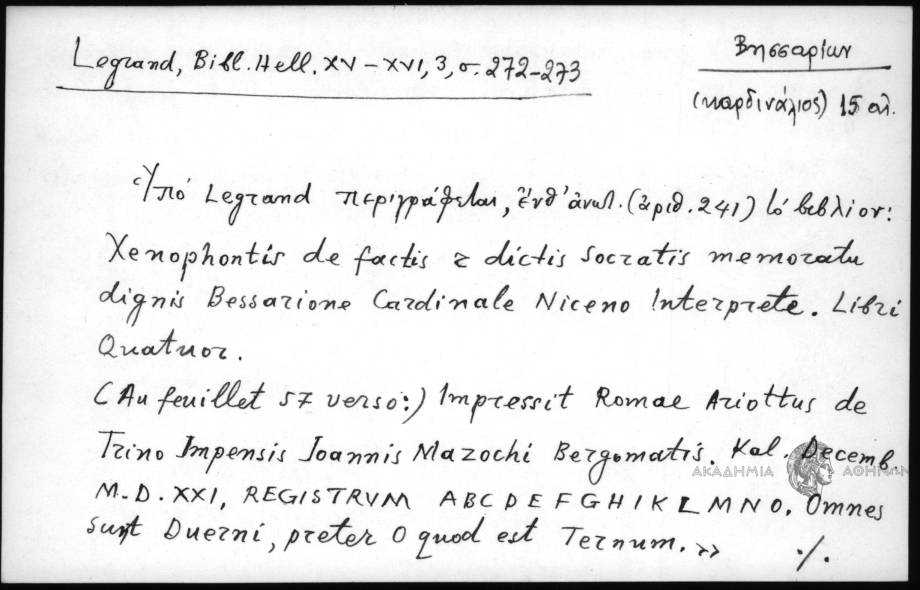 Legrand, Bibl. Hell. XV – XVI, 3, σ. 272-273
Βησσαρίων
(καρδινάλιος) 15 αἰ.
Ὑπό Legrand περιγράφεται, ἔνθ' ἀνωτ. (ἀριθ. 241) τό βιβλίον:
Xenophontis de factis & dictis Socratis memoratu
dignis Bessarione Cardinale Niceno Interprete. Libri
Quatuor.
(Au feuillet 57 verso:) Impressit Romae Ariottus de
Trino Impensis Joannis Mazochi Bergomatis. Kal. Decemb.
M.D.XXI, REGISTRVM ABCDEFGHIKLMNO. Omnes
sunt Duerni, preter O quod est Ternum.»
./.
ΑΚΑΔΗΜΙΑ ΑΘΗΝΩΝ